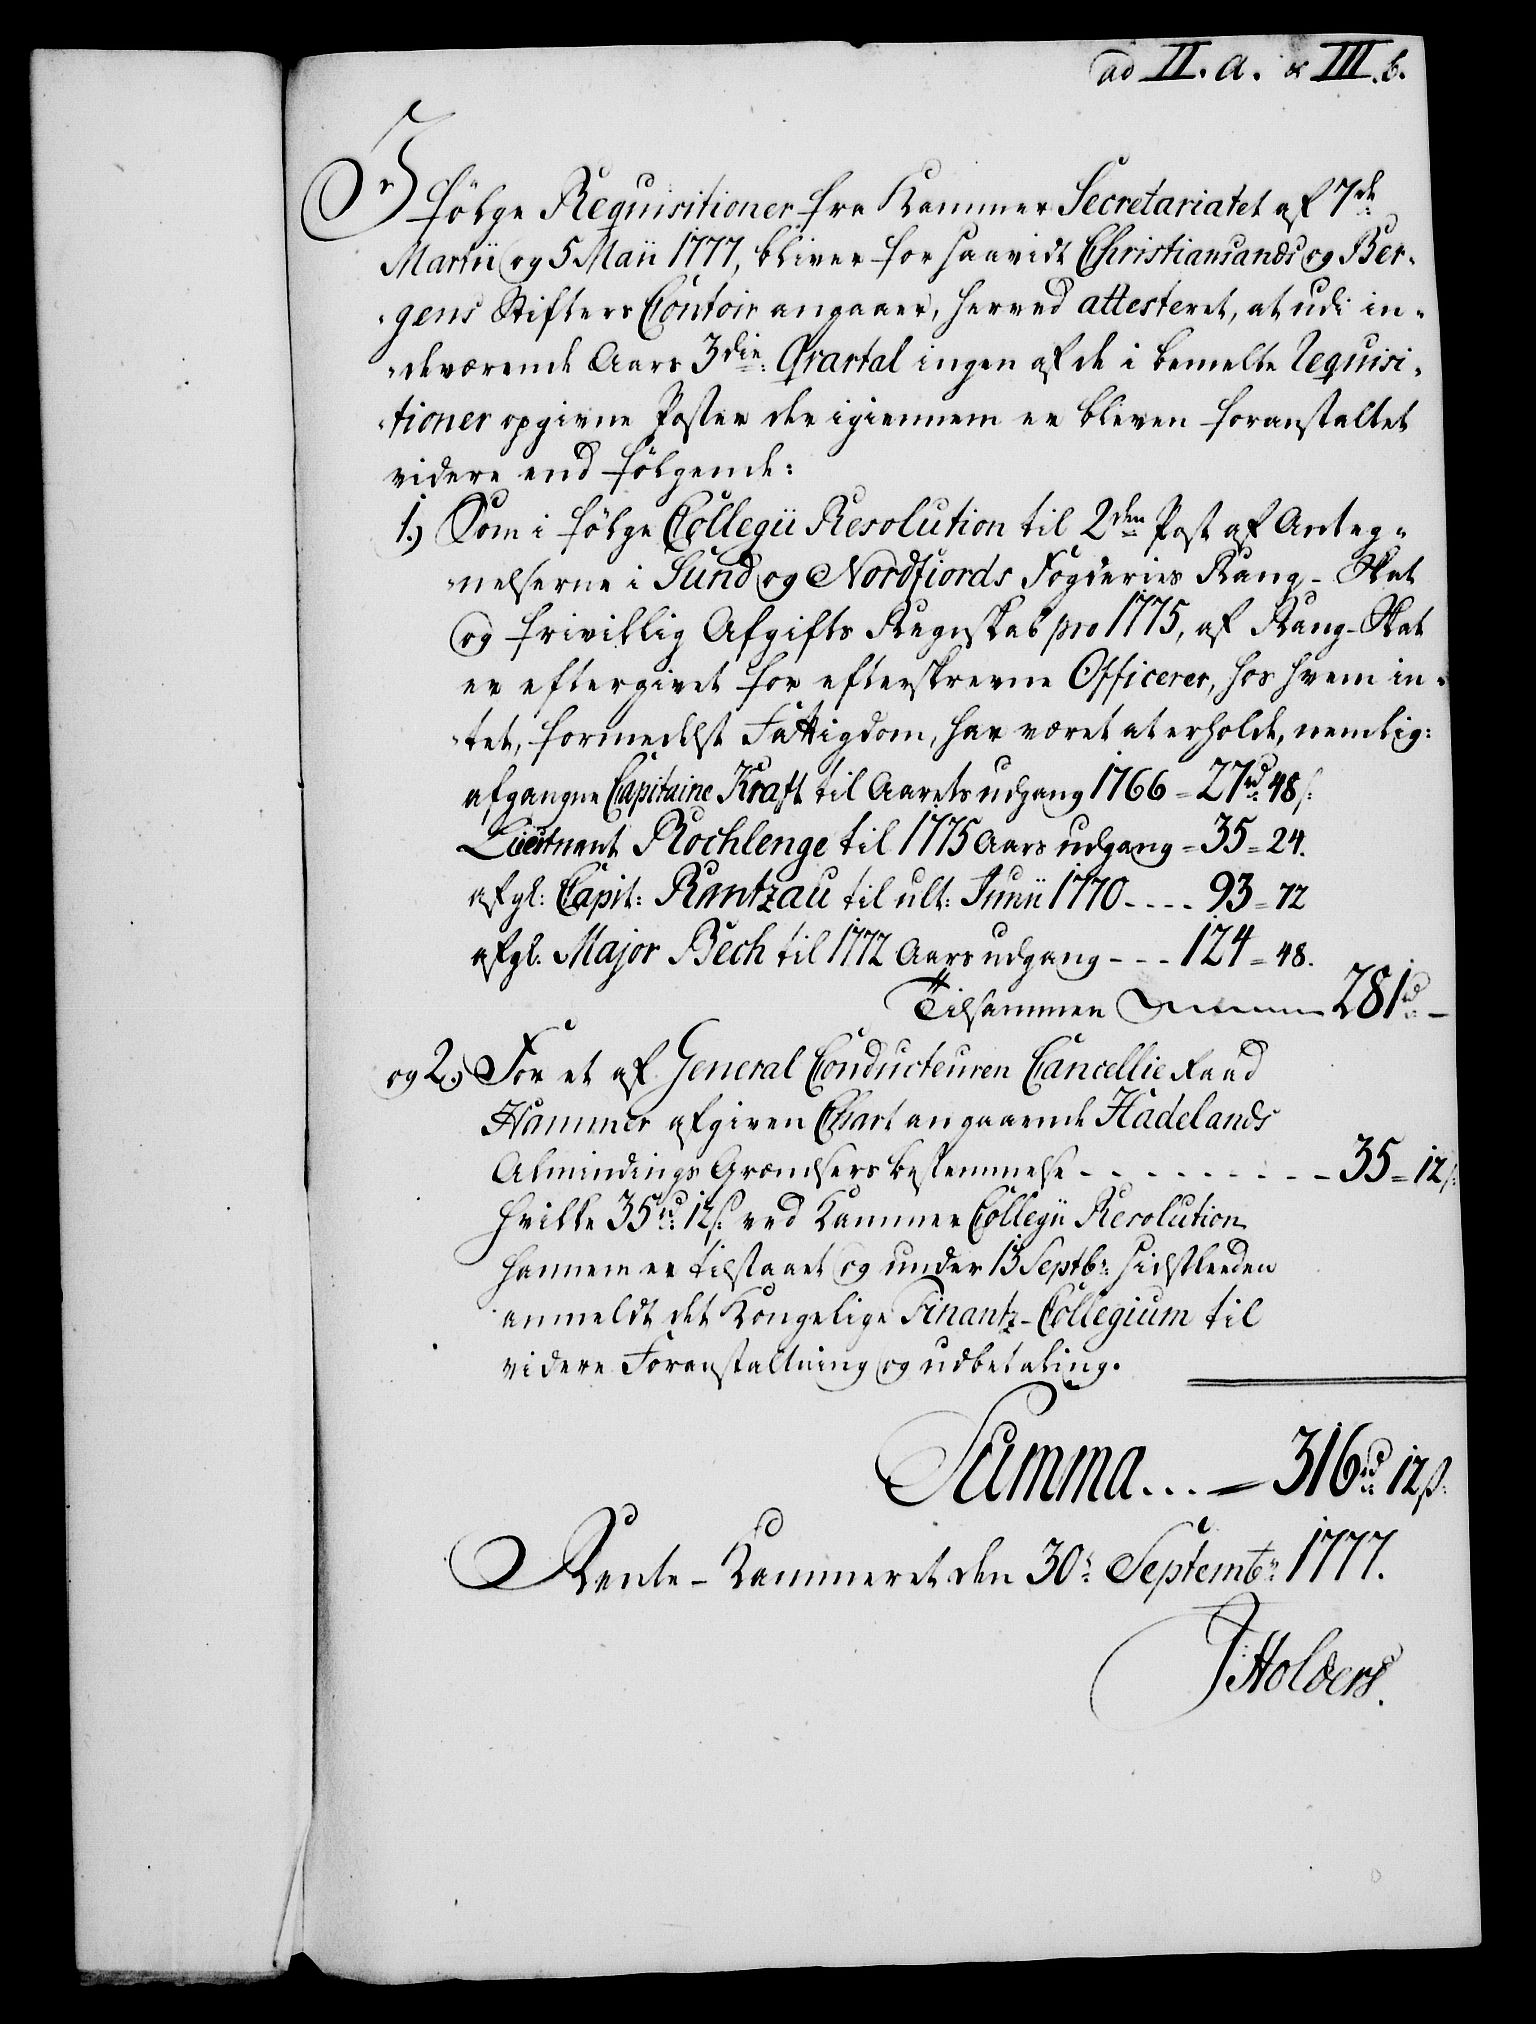 ad II. a. & III. b.
I følge Requisitioner fra Kammer Secretariatet af 7de
Martii og 5 Maii 1777, bliver for saavidt Christiansands og Ber-
gens Stifters Contoir angaaer, herved attesteret, at udi in-
deværende Aars 3die Qvartal ingen af de i bemelte requisi-
tioner opgivne Poster der igiennem er bleven foranstaltet
videre end følgende:
1.) Som i følge Collegii Resolution til 2den Post af Anteg-
nelserne i Sund og Nordfiords Fogderies Rang-Skat
og frivillig Afgifts Regnskab pro 1775, af Rang-Skat
er eftergivet for efterskrevne Officerer, hos hvem in-
tet, formedelst Fattigdom, har været at erholde, nemlig:
afgangne Capitaine Kraft til Aarets udgang 1766 = 27rd 48s:
Lieutnant Rochlenge til 1775 Aars udgang = 35 = 24.
afg: Capit: Rantzau til ult: Junii 1770 - - - - 93 = 72
afg: Major Bech til 1772 Aars udgang - - - 124 = 48.
Tilsammen 281rd -
og 2.) For et af General Conducteuren Cancellie Raad
Hammer afgiven Chart angaaende Hadelands
Almindings Grændsers bestemmelse - - - - - - - - - 35 = 12s:
hvilke 35rd 12s: ved Kammer Collegii Resolution
hannem er tilstaaet og under 13 Septb: sidstleeden
anmeldt det Kongelige Finantz-Collegium til
videre Foranstaltning og udbetaling.
Summa . . . = 316rd 12s:
Rente-Kammeret den 30: Septemb: 1777.
J Holbers.